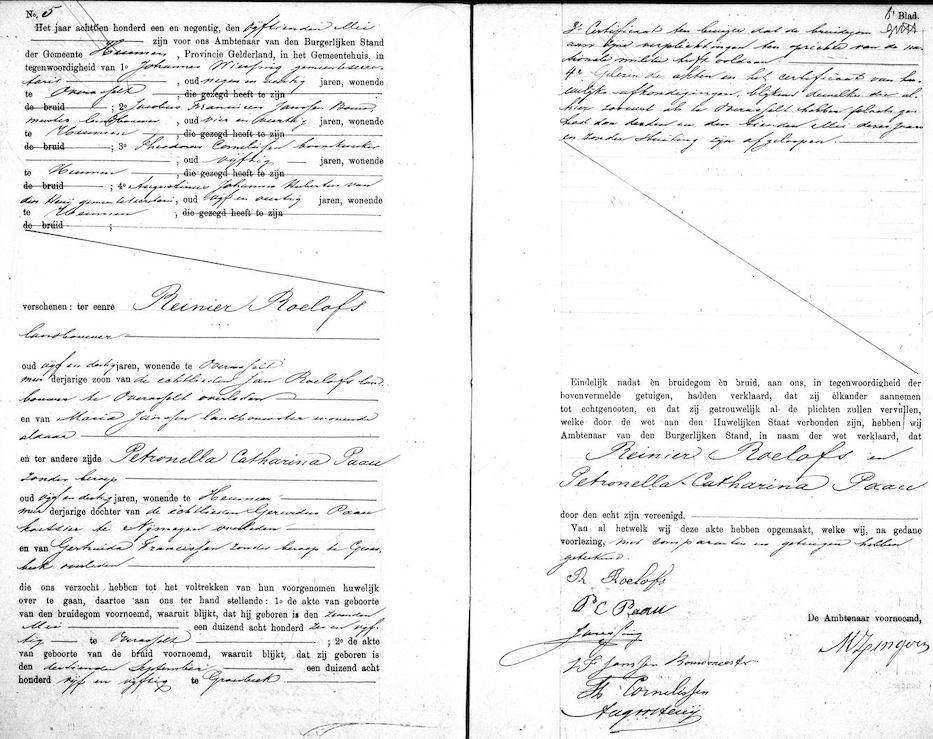 No. 5
Het jaar achttien honderd een en negentig, den vijftienden Mei
zijn voor ons Ambtenaar van den Burgerlijken Stand
der Gemeente Heumen, Provincie Gelderland, in het Gemeentehuis, in
tegenwoordigheid van 1o Johannes gemeentesecre-
taris, oud negen en veertig jaren, wonende
te Overasselt, die gezegd heeft te zijn
de bruid ; 2o Jacobus Franciscus Janssen Bouw-
meester landbouwer, oud vier en veertig jaren, wonende
te Heumen, die gezegd heeft te zijn
de bruid ; 3o Theodorus Cornelissen boomkweeker
, oud vijftig jaren, wonende
te Heumen, die gezegd heeft te zijn
de bruid ; 4o Augustinus Johannes Hubertus van
den, oud vijf en veertig jaren, wonende
te Heumen, die gezegd heeft te zijn
de bruid ;
verschenen: ter eenre Reinier Roelofs
landbouwer
oud vijf en dertig jaren, wonende te Overasselt
meerderjarige zoon van de echtlieden Jan Roelofs land-
bouwer te Overasselt overleden
en van Maria Janssen landbouwster wonende
aldaar
en ter andere zijde Petronella Catharina Paau
zonder beroep
oud vijf en dertig jaren, wonende te Heumen
meerderjarige dochter van de echtlieden Gerardus Paau
koetsier te Nijmegen overleden
en van Gertruida Francissen zonder beroep te Groes-
beek overleden
die ons verzocht hebben tot het voltrekken van hun voorgenomen huwelijk
over te gaan, daartoe aan ons ter hand stellende: 1o de akte van geboorte
van den bruidegom voornoemd, waaruit blijkt, dat hij geboren is den
Mei een duizend acht honderd zes en vijf-
tig te Overasselt ; 2o de akte
van geboorte van de bruid voornoemd, waaruit blijkt, dat zij geboren is
den dertienden September een duizend acht
honderd vijf en vijftig te Groesbeek
Blad.
3o Certificaat ten bewijze dat de bruidegom
aan zijne verplichtingen ten opzichte van de na-
tionale militie heeft voldaan
4o Gelezen de akten en het certificaat van hu-
welijks afkondigingen, blijkens dewelke die al-
hier zoowel als te Overasselt hebben plaats ge-
had den derden en den tienden Mei dezes jaars
en zonder stuiting zijn afgeloopen.
Eindelijk nadat èn bruidegom èn bruid, aan ons, in tegenwoordigheid der
bovenvermelde getuigen, hadden verklaard, dat zij elkander aannemen
tot echtgenooten, en dat zij getrouwelijk al de plichten zullen vervullen,
welke door de wet aan den Huwelijken Staat verbonden zijn, hebben wij
Ambtenaar van den Burgerlijken Stand, in naam der wet verklaard, dat
Reinier Roelofs en
Petronella Catharina Paau
door den echt zijn vereenigd.
Van al hetwelk wij deze akte hebben opgemaakt, welke wij, na gedane
voorlezing, met comparanten en getuigen hebben
geteekend.
R. Roelofs
P C Paau
De Ambtenaar voornoemd,
J F Janssen Bouwmeester
Th Cornelissen